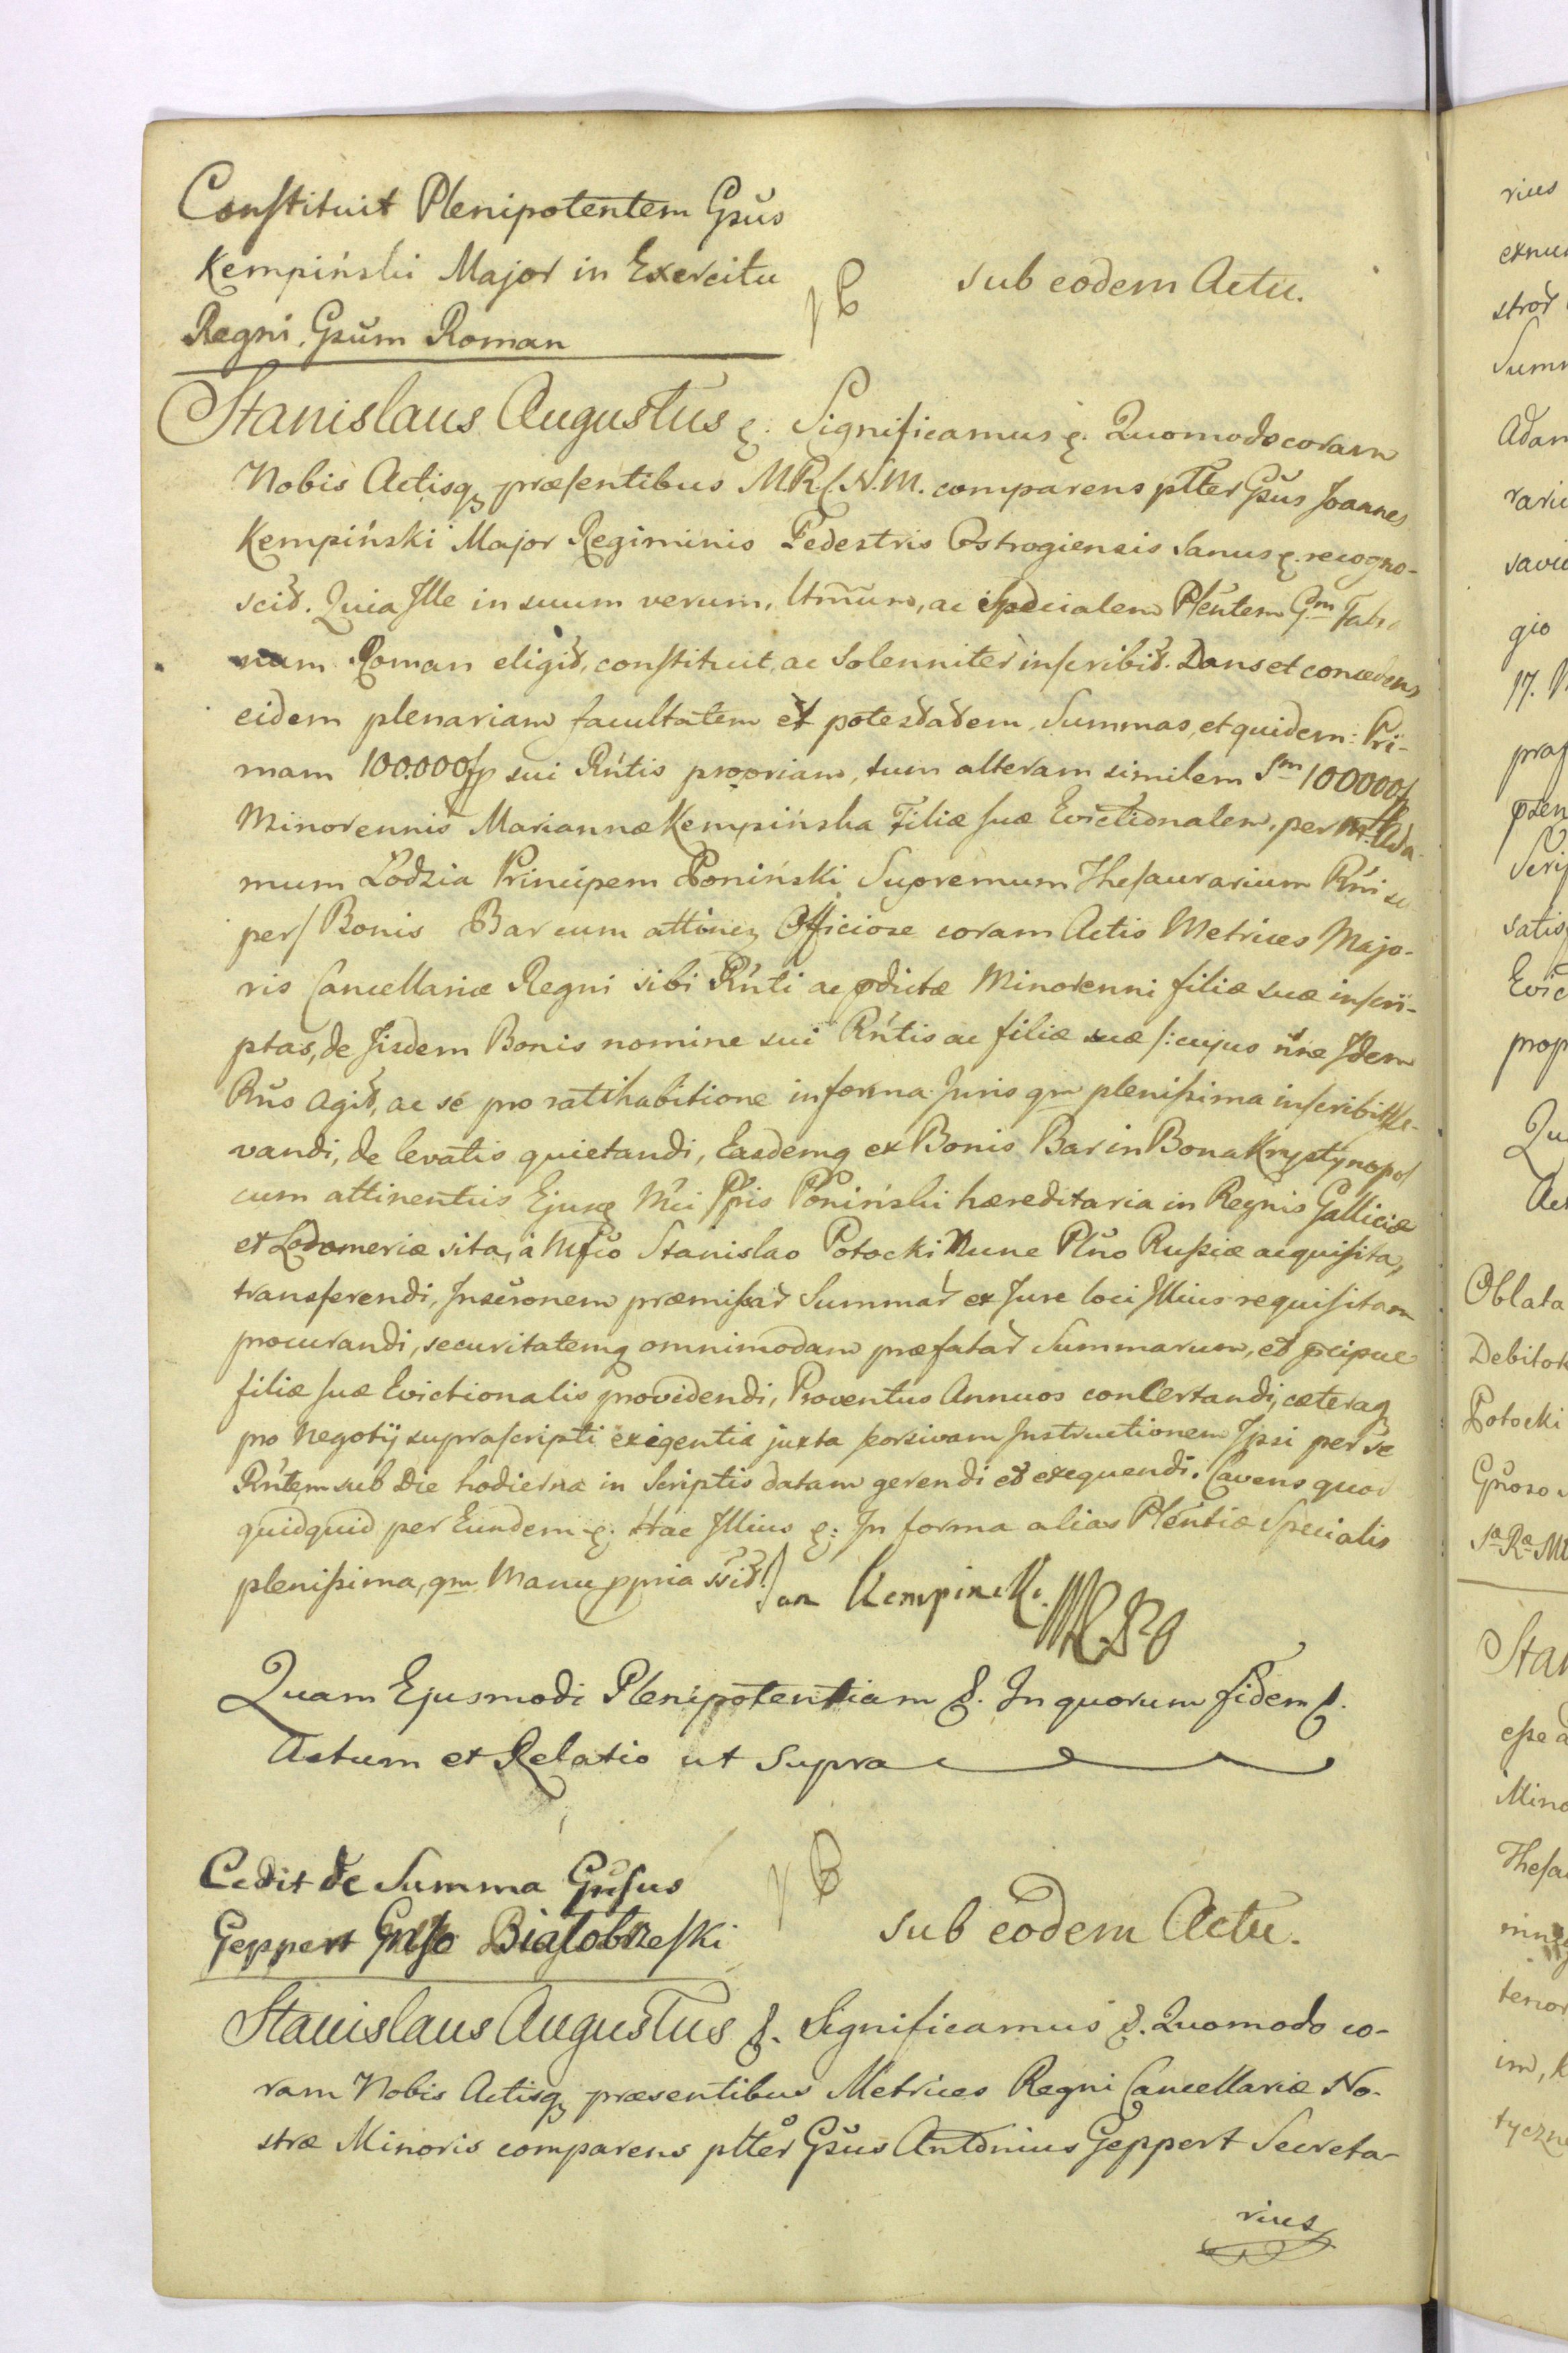 Constituit Plenipotentem Gsus
Kempiński Major in Exercitu
Regni, Gsum Roman
sub eodem Actu.
Stanislaus Augustus &. Significamus &. Quomodo coram
Nobis Actisq præsentibus M.R.C.N.M. comparens ptter Gsus Joannes
Kempiński Major Regiminis Pedestris Ostrogiensis sanus &. recogno-
scit. Quia Ille in suum verum, ltmum, ac specialem Plentem Gm
num Roman eligit, constituit, ac solenniter inscribit. Dans et concedens
eidem plenariam facultatem et potestatem, Summas, et quidem: Pri-
mam 100.000 fp sui Rntis propriam, tum alteram similem Sm 100000 fp
Minorennis Mariannæ Kempińska Filiæ suæ Evictionalem, per Ada-
mum Lodzia Principem Poniński Supremum Thesaurarium Rni su
per Bonis Bar cum attinen Officiose coram Actis Metrices Majo-
ris Cancellariæ Regni sibi Rnti ac pdictæ Minorenni filiæ suæ inscri-
ptas, de Jisdem Bonis nomine sui Rntis ac filiæ suæ /: cujus nne Idem
Rns agit, ac se pro ratihabitione in forma Juris qm plenissima inscribit :/ le-
vandi, de levatis quietandi, Easdemq ex Bonis Bar in Bona Krystynopol
cum attinentiis Ejusq Mci Ppis Poniński hæreditaria in Regnis Galliciæ
et Lodomeriæ sita, á Mfco Stanislao Potocki Nunc Plno Russiæ acquisita,
transferendi, Inscronem præmissar Summar ex Jure loci Illius requisitam
procurandi, securitatemq omnimodam præfatar Summarum, et pcipue
filiæ suæ Evictionalis providendi, Proventus Annuos concertandi, cæteraq
pro Negotij suprascripti exigentia juxta seorsivam Instructionem Ipsi per se
Rntem sub die hodierna in Scriptis datam gerendi et exequendi. Cavens quod
quidquid per Eundem &: Hac Illius &: In forma alias Plentiæ Specialis
plenissima, qm Manu ppria ssit. Jan Kempinski.
Quam Ejusmodi Plenipotentiam &. In quorum fidem &.
Actum et Relatio ut supra
Cedit de Summa Gnsus
Geppert Gnso Białobrzeski
sub eodem Actu.
Stanislaus Augustus &. Significamus &. Quomodo co-
ram Nobis Actisq præsentibus Metrices Regni Cancellariæ No-
stræ Minoris comparens ptter Gsus Antonius Geppert Secreta-
rius
rius
stror
Summ
Adam
gio
17.
satis
Evic
prop
Qu
Act
Oblata
Debitor
Potocki
Stan
esse a
Mino
Thesa
im, k
tyczne